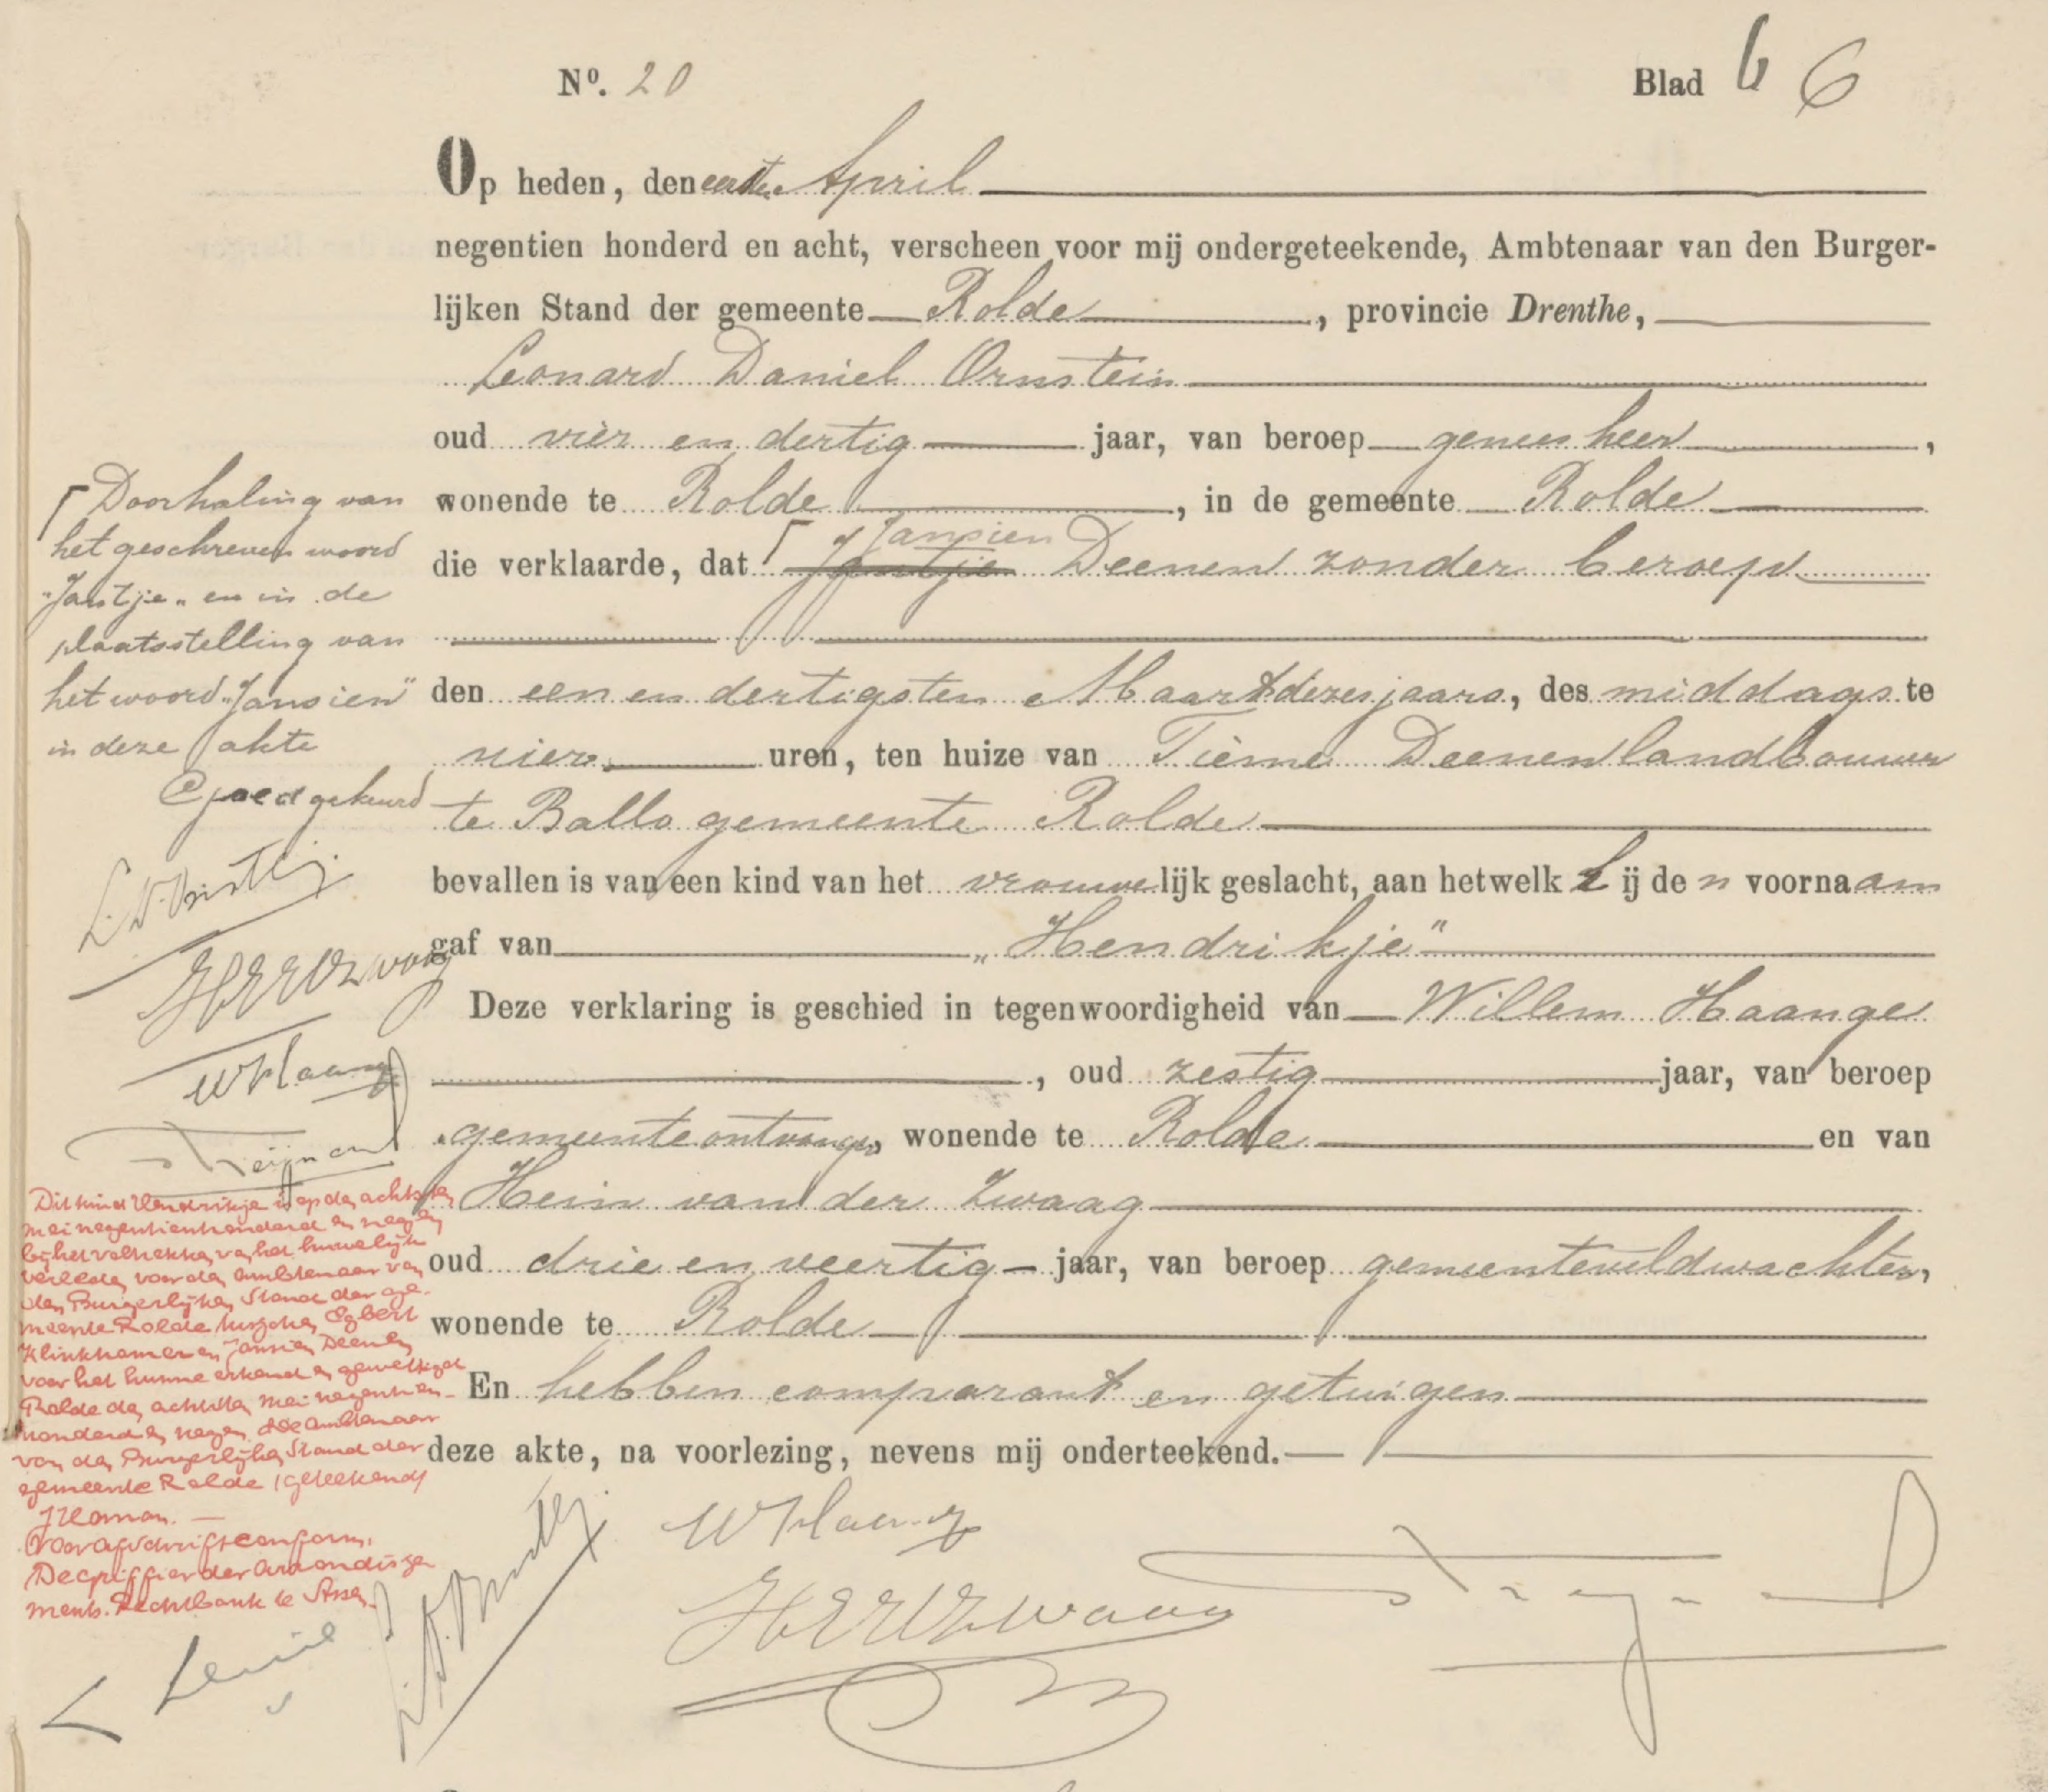 Nº. 20
Blad 6 6
Op heden, den eersten April
negentien honderd en acht, verscheen voor mij ondergeteekende, Ambtenaar van den Burger-
lijken Stand der gemeente Rolde, provincie Drenthe,
Leonard Daniel Ornstein
oud vier en dertig jaar, van beroep geneesheer,
wonende te Rolde, in de gemeente Rolde
die verklaarde, dat ┌ Jantje Jansien Deenen zonder beroep
den een en dertigsten Maart dezes jaars, des middags te
vier uren, ten huize van Tieme Deenen landbouwer
te Ballo gemeente Rolde
bevallen is van een kind van het vrouwelijk geslacht, aan hetwelk hij den voornaam
gaf van „Hendrikje"
Deze verklaring is geschied in tegenwoordigheid van Willem Haange
, oud zestig jaar, van beroep
gemeenteontvanger, wonende te Rolde en van
Hein van der Zwaag
oud drie en veertig jaar, van beroep gemeenteveldwachter,
wonende te Rolde
En hebben comparant en getuigen
deze akte, na voorlezing, nevens mij onderteekend.
┌ Doorhaling van
het geschreven woord
„Jantje„ en in de
plaatsstelling van
het woord „Jansien"
in deze akte
Goedgekeurd
L. D. Ornstein
HvdZwaag
WHaange
Dit kind Hendrikje is op den achtsten
Mei negentienhonderd en negen
bij het voltrekken van het huwelijk
verleden voor den Ambtenaar van
den Burgerlijken Stand der ge-
meente Rolde tusschen Egbert
Klinkhamer en Jansien Deenen
voor het hunne erkend en gewettigd
Rolde den achtsten Mei negentien-
honderd en negen. De Ambtenaar
van den Burgerlijken Stand der
gemeente Rolde (geteekend)
JHoman.
Voor afschrift conform.
De griffier der Arrondisse
ments. Rechtbank te Assen.
L. D. Ornstein
WHaange
HvdZwaag